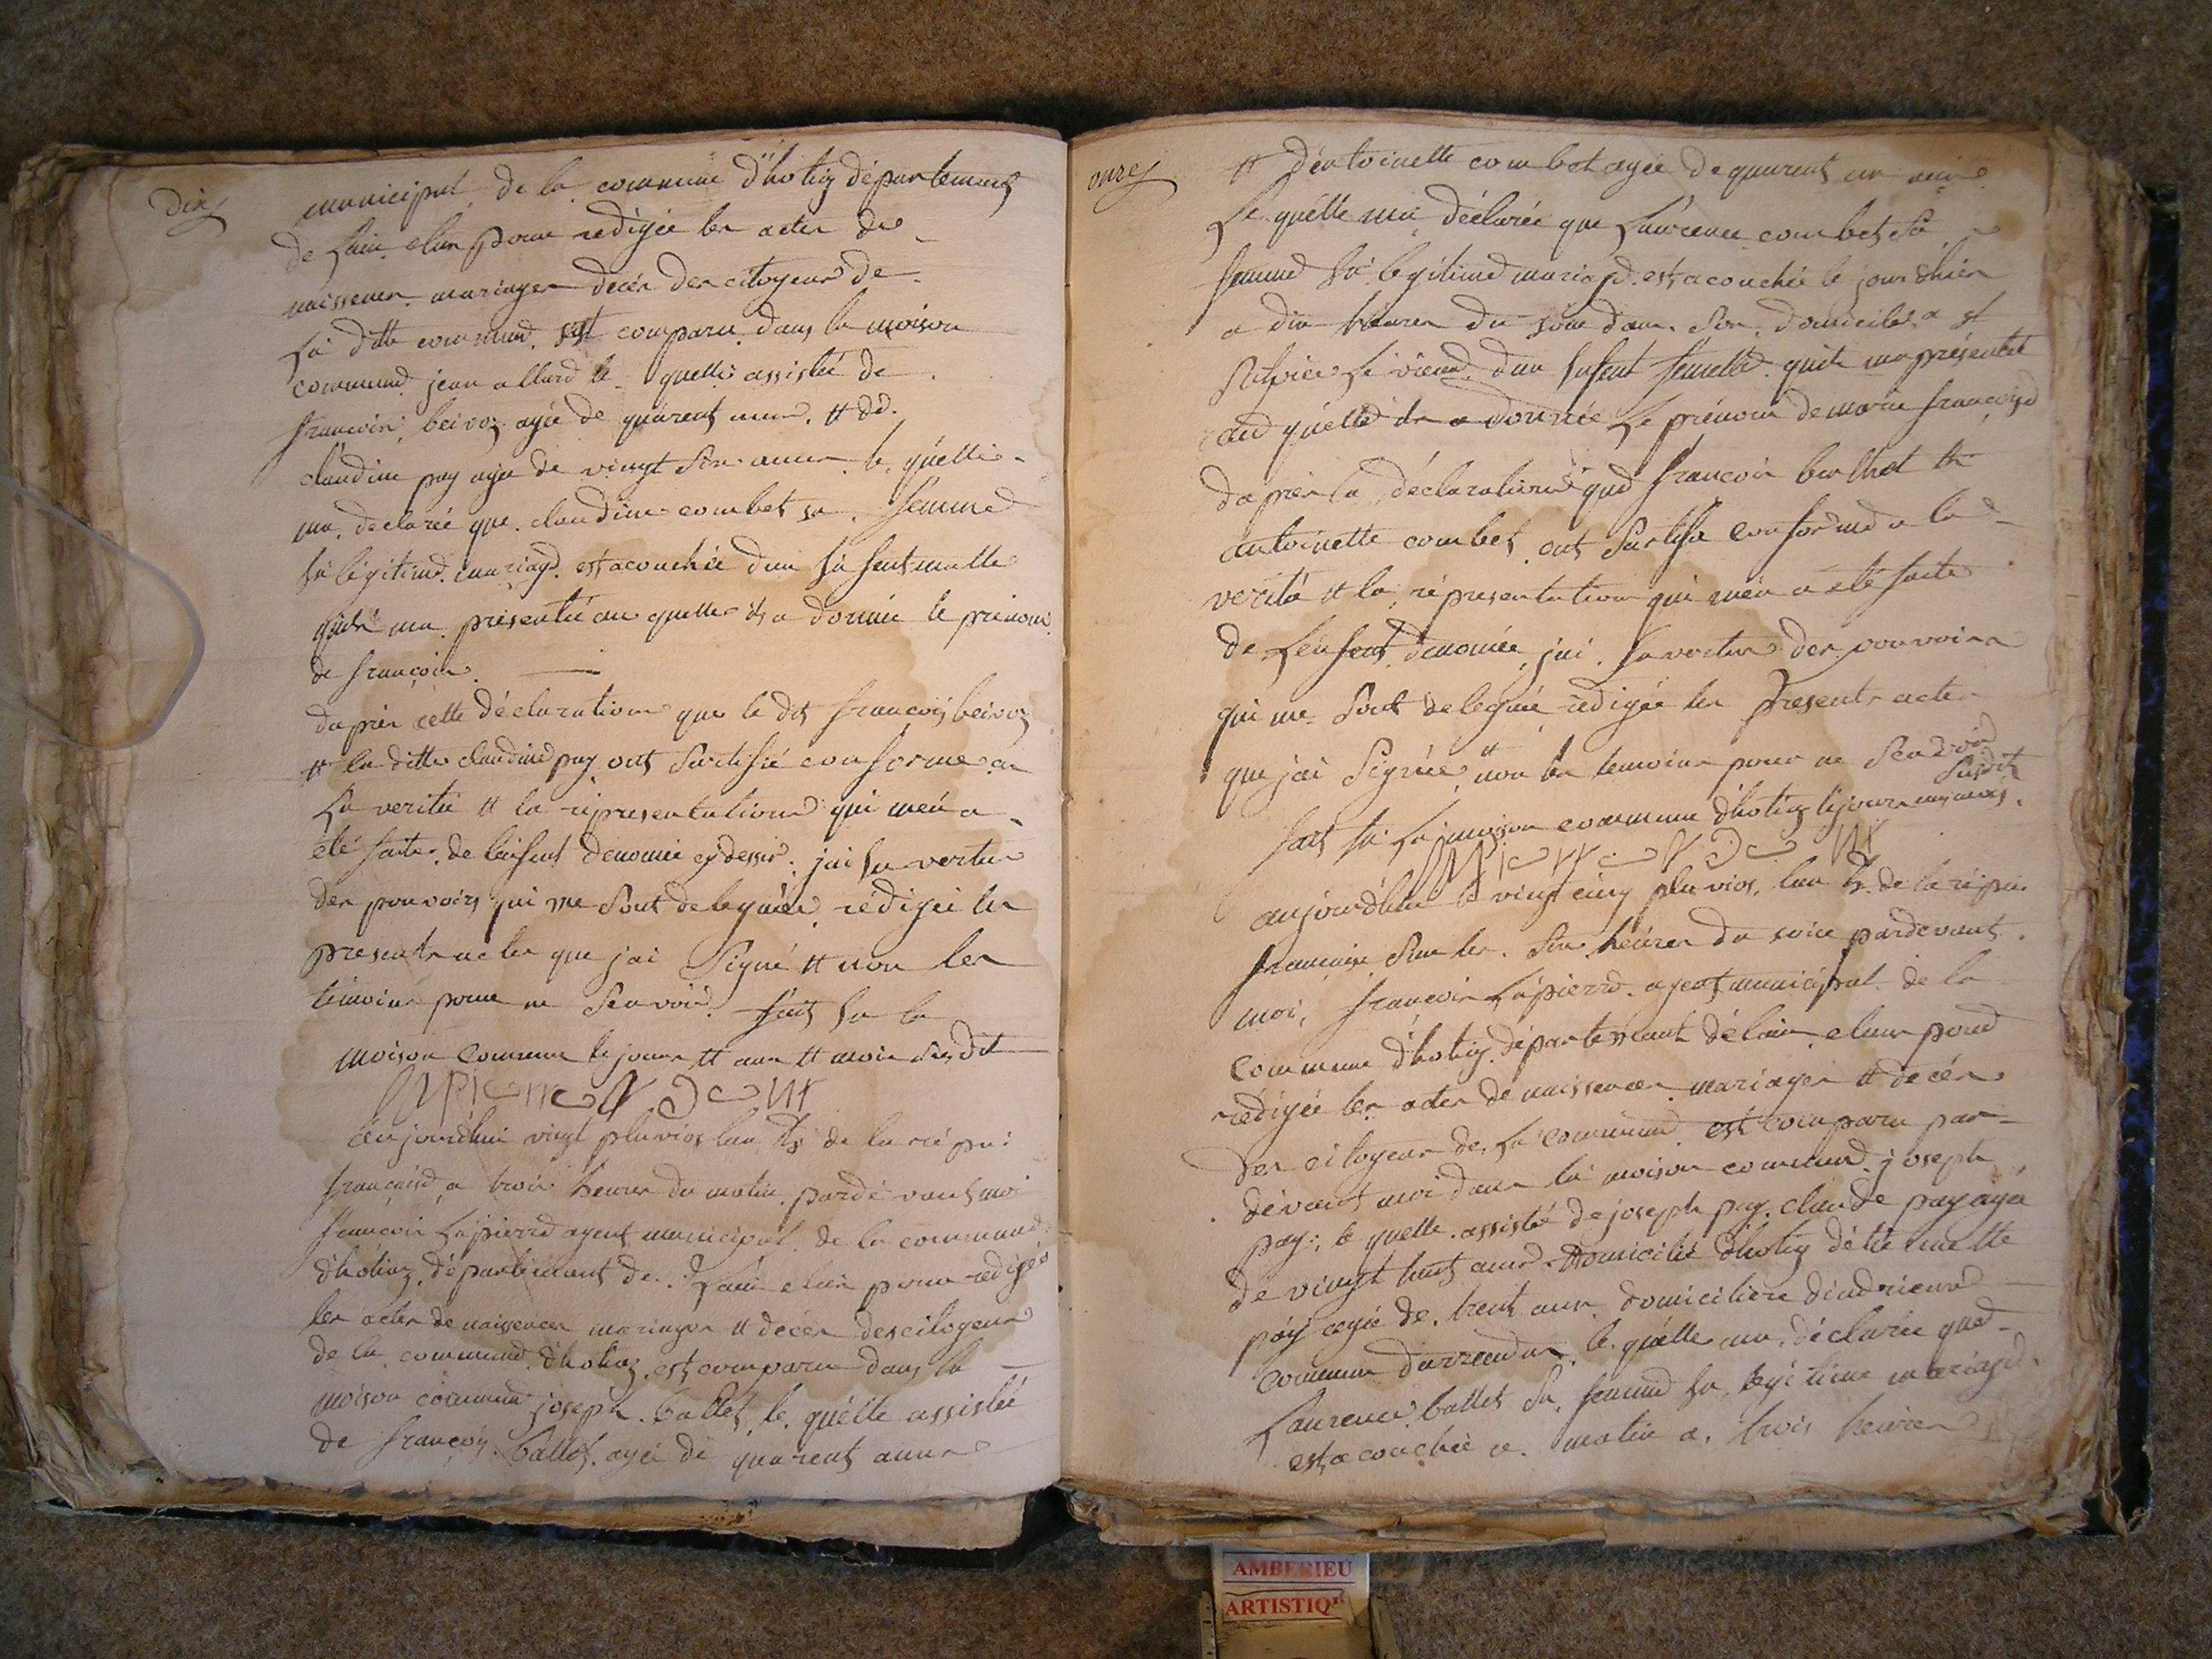 dix
municipal de la commune d'hotiaz département
de Lain elue pour redigée les actes de
naissences mariages decés des citoyens de
La ditte commune est comparu dans la moison
commune jean allard le quelle assistée de
francois beivoz agée de quarent anne et de
claudine pay agée de vingt six annes le quelle
ma declarée que claudine combet sa femme
sa légitime mariage est acouchée dun enfent malle
quil ma présentée au quelle il a donnée le prénom
de françois
dapres cette déclaration que le dit francois beivoz
et la ditte claudine pay ont sertifié conforme a
La verité et la représentation qui men a
été faite de lenfent denomée cydessu jai en vertu
des pouvoirs qui me sont deleguée rédigée les
presents actes que jai signé et non les
temoins pour ne savoir fait en la
moison commune le jours et ans et mois susdit
aujourdhui vingt pluvios lan de la répu:
française a trois heures du matin pardevant moi
francois Lapierre agent municipal de la commune
dhotiaz département de Lain elue pour redigée
les actes de naissences mariages et décés des citoyens
de la commune dhotiaz est comparu dans la
moison commune joseph ballet le quelle assistée
de françois ballet agée de quarent anne
onze
et dentoinette combet agée de quarent un anne
Le quelle ma déclarée que Laurence combet sa
femme sa legitime mariage est acouchée le jour dhier
a dix heures du soir dans son domicile a st
Sulpice Le vieux dun enfent femelle quil ma présentée
au quelle il a donnée Le prénom de marie françoise
dapres la déclaration que francois berthet et
antoinette combet ont sertifié conforme a la
verité et la représentation qui men a été faite
de Lenfent denomée jai en vertu des pouvoirs
qui me sont deleguée rédigée les presents actes
que jai signée et non les temoins pour ne savoir
fait en La moison commune dhotiaz le jours mois ans
susdit
aujourdhui le vingt cinq pluvios lan de la répu:
francaise sur les six heures du soire pardevant
moi francois Lapierre agent municipal de la
commune dhotiaz département de lain elue pour
rédigée les actes de naissences mariages et decés
des citoyens de La commune est comparu par
devant moi dans la moison commune joseph
pay le quelle assistée de joseph pay claude pay agée
de vingt huit anne domicilié dhotiaz
pay agée de trent anne domiciliere
commune le quelle ma déclarée que
Laurence ballet sa femme sa legitime mariage
est acouchée ce matin a trois heures
AMBERIEU
ARTISTIQ